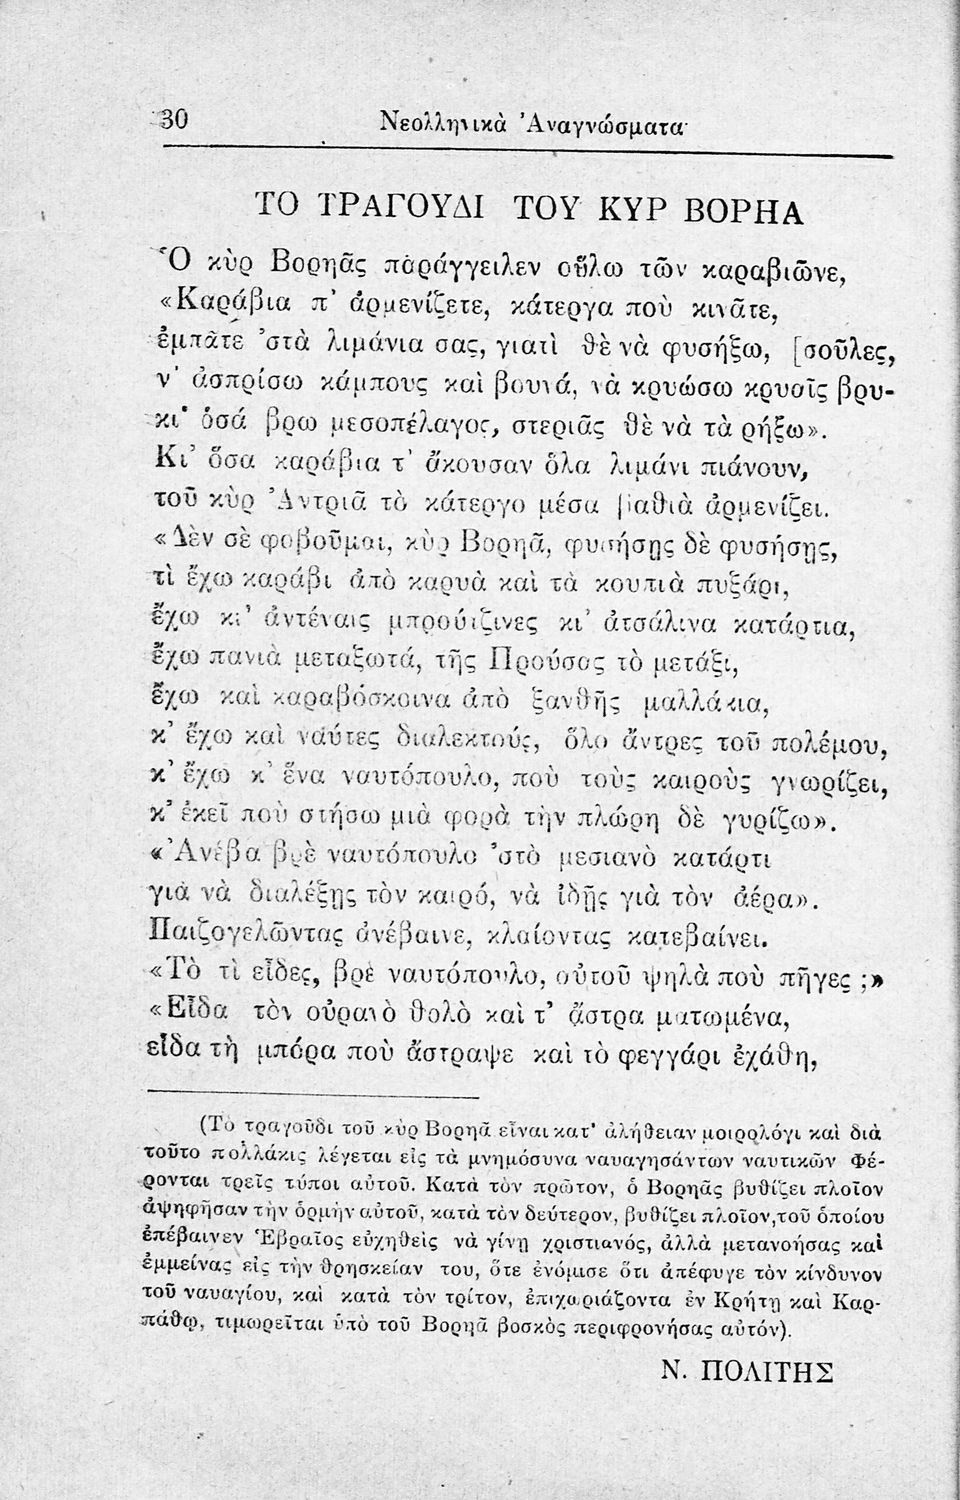 30 Νεολληνικὰ Ἀναγνώσματα
ΤΟ ΤΡΑΓΟΥΔΙ ΤΟΥ ΚΥΡ ΒΟΡΗΑ
Ὁ κὺρ Βορηᾶς παράγγειλεν οὕλω τῶν καραβιῶνε,
«Καράβια π' ἀρμενίζετε, κάτεργα ποὺ κινᾶτε,
ἐμπᾶτε 'στὰ λιμάνια σας, γιατὶ θὲ νὰ φυσήξω, [σοῦλες,
ν' ἀσπρίσω κάμπους καὶ βουνά, νὰ κρυώσω κρυοῖς βρυ-
κι' ὁσά βρω μεσοπέλαγος, στεριᾶς θὲ νὰ τὰ ρήξω».
Κι' ὅσα καράβια τ' ἄκουσαν ὅλα λιμάνι πιάνουν,
τοῦ κὺρ Ἀντριᾶ τὸ κάτεργο μέσα βαθιὰ ἀρμενίζει.
«Δὲν σὲ φοβοῦμαι, κὺρ Βορηᾶ, φυσήσῃς δὲ φυσήσῃς,
τὶ ἔχω καράβι ἀπὸ καρυὰ καὶ τὰ κουπιὰ πυξάρι,
ἔχω κι' ἀντέναις μπρούτζινες κι' ἀτσάλινα κατάρτια,
ἔχω πανιὰ μεταξωτά, τῆς Προύσας τὸ μετάξι,
ἔχω καὶ καραβόσκοινα ἀπὸ ξανθῆς μαλλάκια,
κ' ἔχω καὶ ναύτες διαλεκτούς, ὅλο ἄντρες τοῦ πολέμου,
κ' ἔχω κ' ἕνα ναυτόπουλο, ποὺ τοὺς καιροὺς γνωρίζει,
κ' ἐκεῖ ποὺ στήσω μιὰ φορὰ τὴν πλώρη δὲ γυρίζω».
«Ἀνέβα βρὲ ναυτόπουλο 'στὸ μεσιανὸ κατάρτι
γιὰ νὰ διαλέξῃς τὸν καιρό, νὰ ἰδῇς γιὰ τὸν ἀέρα».
Παιζογελῶντας ἀνέβαινε, κλαίοντας κατεβαίνει.
«Τὸ τὶ εἶδες, βρὲ ναυτόπουλο, αὐτοῦ ψηλὰ ποὺ πῆγες ;»
«Εἶδα τὸν οὐρανὸ θολὸ καὶ τ' ἄστρα ματωμένα,
εἶδα τὴ μπόρα ποὺ ἄστραψε καὶ τὸ φεγγάρι ἐχάθη,
(Τὸ τραγοῦδι τοῦ κὺρ Βορηᾶ εἶναι κατ' ἀλήθειαν μοιρολόγι καὶ διὰ
τοῦτο πολλάκις λέγεται εἰς τὰ μνημόσυνα ναυαγησάντων ναυτικῶν Φέ-
ρονται τρεῖς τύποι αὐτοῦ. Κατὰ τὸν πρῶτον, ὁ Βορηᾶς βυθίζει πλοῖον
ἀψηφῆσαν τὴν ὁρμὴν αὐτοῦ, κατὰ τὸν δεύτερον, βυθίζει πλοῖον,τοῦ ὁποίου
ἐπέβαινεν Ἑβραῖος εὐχηθεὶς νὰ γίνῃ χριστιανός, ἀλλὰ μετανοήσας καὶ
ἐμμείνας εἰς τὴν θρησκείαν του, ὅτε ἐνόμισε ὅτι ἀπέφυγε τὸν κίνδυνον
τοῦ ναυαγίου, καὶ κατὰ τὸν τρίτον, ἐπιχωριάζοντα ἐν Κρήτῃ καὶ Καρ-
πάθῳ, τιμωρεῖται ὑπὸ τοῦ Βορηᾶ βοσκὸς περιφρονήσας αὐτόν).
Ν. ΠΟΛΙΤΗΣ